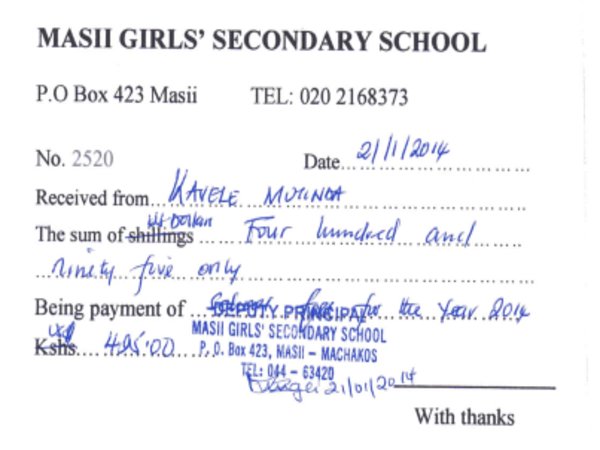 MASII GIRLS' SECONDARY SCHOOL
P.O Box 423 Masii TEL: 020 2168373
No. 2520 Date 21/1/2014
Received from KAVELE MUTINDA
US Dollars
The sum of shillings Four hundred and
ninety five only
Being payment of School fees for the Year 2014
DEPUTY PRINCIPAL
MASII GIRLS' SECONDARY SCHOOL
USD
Kshs 495.00 P. O. Box 423, MASII – MACHAKOS
TEL: 044 – 63420
21/01/2014
With thanks